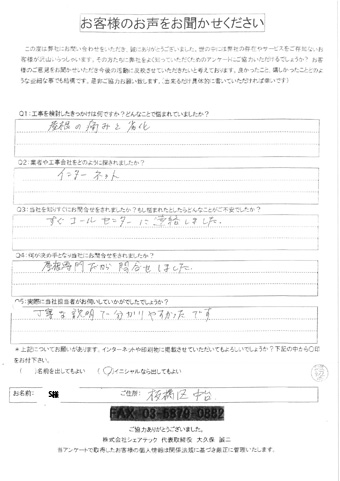 お客様のお声をお聞かせください
この度は弊社にお問い合わせをいただき、誠にありがとうございました。世の中には弊社の存在やサービスをご存知ないお
客様が沢山いらっしゃいます。その方たちに弊社をよく知っていただくためのアンケートにご協力いただけるでしょうか？お客
様のご意見をお聞かせくださき今後の活動に反映させていただきたいと考えております。良かったこと、嬉しかったことどのよ
うな些細な事でも結構です。是非ご協力お願い致します。（出来るだけ具体的に書いていただければ幸いです）
Q1：工事を検討したきっかけは何ですか？どんなことで悩まれていましたか？
屋根の痛みと劣化
Q2：業者や工事会社をどのように探されましたか？
インターネット
Q3：当社を知りすぐにお問合せをされましたか？もし悩まれたとしたらどんなことがご不安でしたか？
すぐコールセンターに連絡しました。
Q4：何が決め手となり当社にお問合せをされましたか？
屋根専門だから問合せしました。
Q5：実際に当社担当者がお伺いしていかがでしたでしょうか？
丁寧な説明で分かりやすかったです
＊上記についてお願いがあります。インターネットや印刷物に掲載させていただいてもよろしいでしょうか？下記の中から○印
をお付け下さい。
（　）名前を出してもよい　（○）イニシャルなら出してもよい
お名前：
ご住所： 板橋区
FAX 03-5879-0882
ご協力ありがとうございました。
株式会社シェアテック 代表取締役 大久保 誠二
当アンケートで取得したお客様の個人情報は関係法規に基づき厳正に管理いたします。